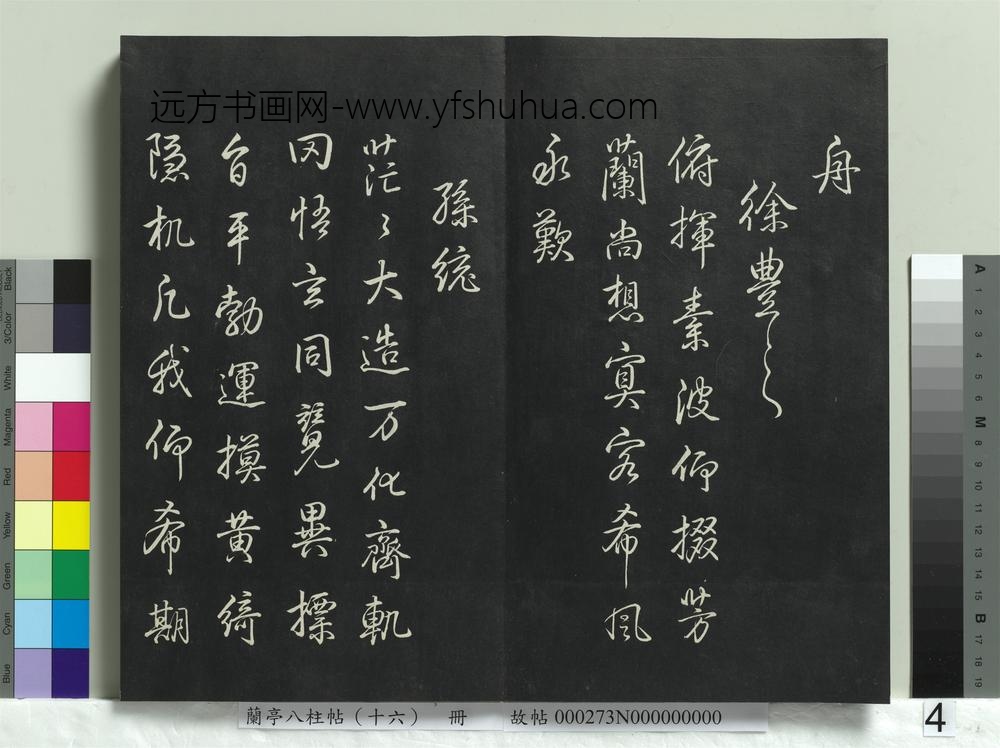 远方书画网-www.yfshuhua.com
舟
徐豐之
俯揮素波仰掇芳
蘭尚想冥客希風
永歎
孫統
茫〻大造万化齊軌
罔悟玄同競異摽
旨平勃運摸黃綺
隱机凡我仰希期
蘭亭八柱帖（十六） 冊 故帖 000273N000000000
4
Black
3/Color
White
Magenta
Red
Yellow
Green
Cyan
Blue
A
1
2
3
4
5
6
M
8
9
10
11
12
13
14
15
B
17
18
19